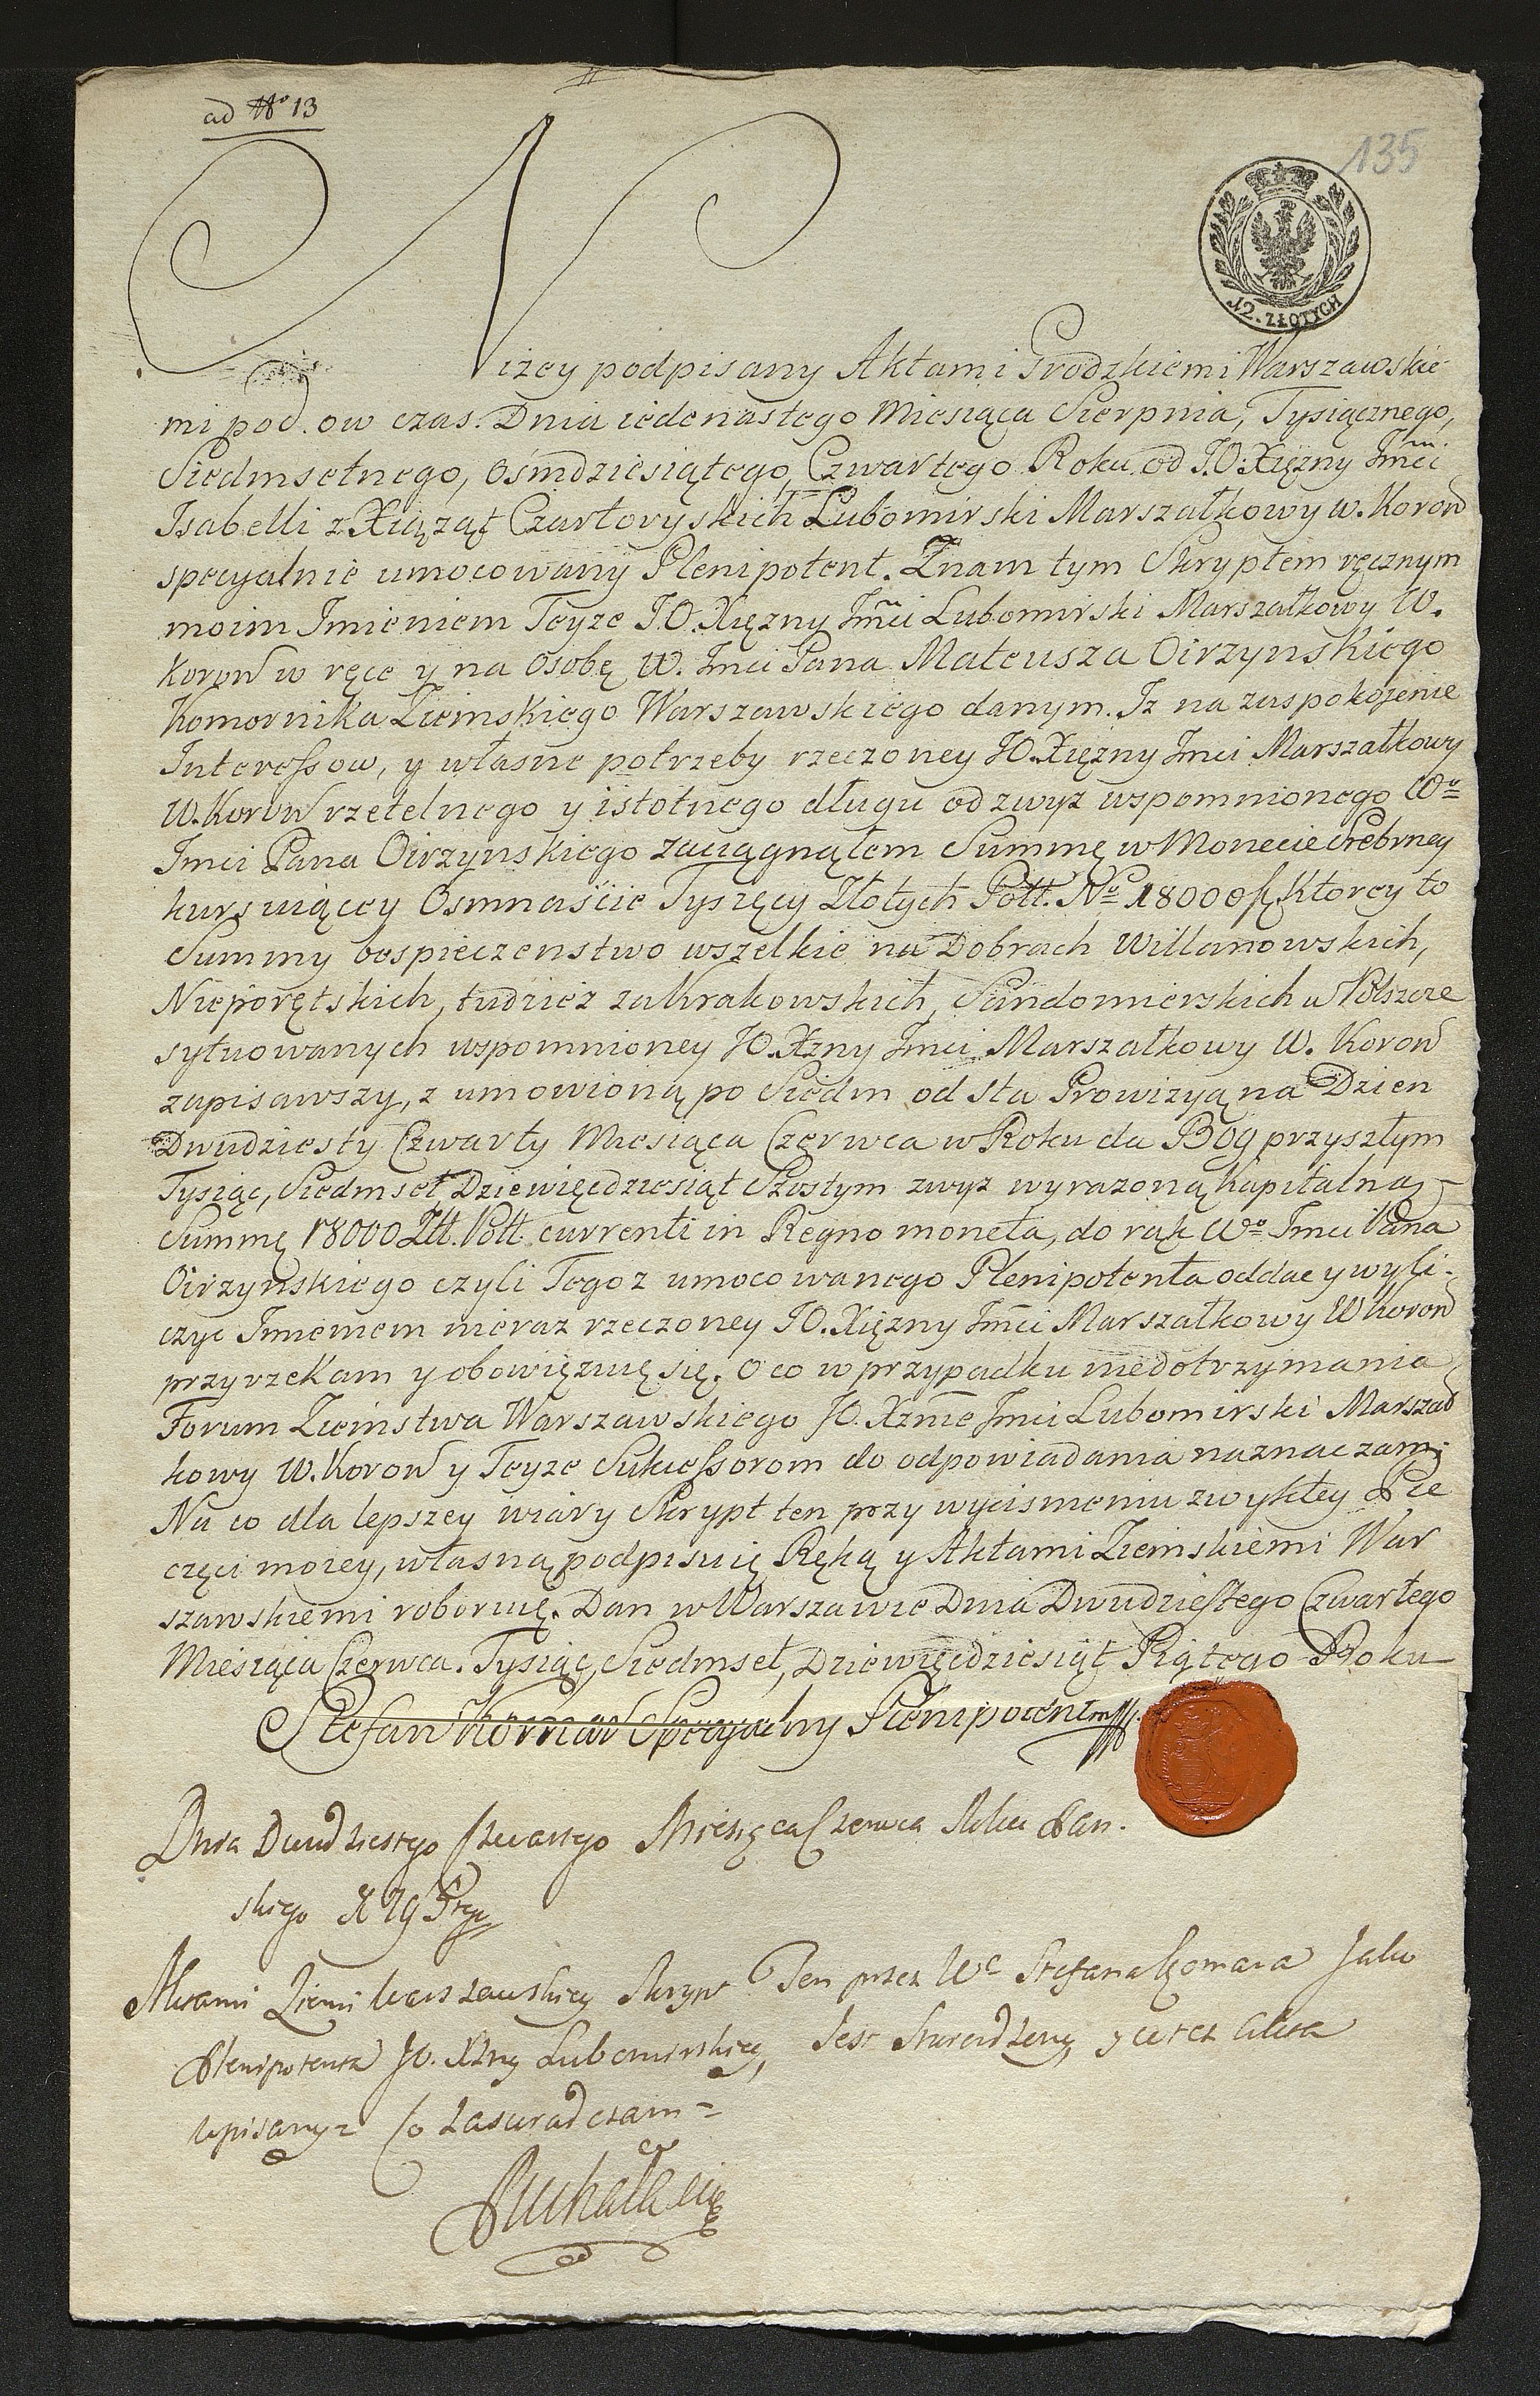 ad No 13
135
12. ZŁOTYCH
Niżey podpisany Aktami Grodzkiemi Warszawskie
mi pod. ow czas. Dnia iedenastego Miesiąca Sierpnia, Tysiącznego,
Siedmsetnego, Osmdziesiątego, Czwartego Roku, od J.O. Xiężny Jmci
Isabelli z Xiążąt Czartoryskich Lubomirski Marszałkowy w. Koron
specyalnie umocowany Plenipotent. Znam tym Skryptem ręcznym
moim Imieniem Teyże J.O. Xiężny Jmci Lubomirski Marszałkowy W.
Koron w ręce y na Osobę W. Jmci Pana Mateusza Oirzynskiego
Komornika Ziemskiego Warszawskiego danym. Iż na zaspokojenie
Interessow, y własne potrzeby rzeczoney JO. Xiężny Jmci Marszałkowy
W. Koron rzetelnego y istotnego długu od zwyż wspomnionego Wo
Jmci Pana Oirzynskiego zaciągnąłem Summę w Monecie Srebrney
kursuiącey Osmnaście Tysięcy Złotych Poll. No 18000 fl. Ktorey to
Summy bespieczenstwo wszelkie na Dobrach Willanowskich,
Nieporętskich, tudzież zakrakowskich, Sandomierskich w Polszcze
sytuowanych wspomnioney JO. Xzny Jmci Marszałkowy W. Koron
zapisawszy, z umowioną po Siedm od sta Prowizyą na Dzien
Dwudziesty Czwarty Miesiąca Czerwca w Roku da Bog przyszłym
Tysiąc, Siedmset, Dziewięcdziesiąt Szostym zwyż wyrażoną Kapitalną
Summę 18000 Złt. Poll. currenti in Regno moneta, do rąk Wo Jmci Pana
Oirzynskiego czyli Tegoż umocowanego Plenipotenta oddac y wyli-
czyc Imieniem nieraz rzeczoney JO. Xiężny Jmci Marszałkowy W Koron
przyrzekam y obowięzuię się. O co w przypadku niedotrzymania
Forum Ziemstwa Warszawskiego JO. Xznie Jmci Lubomirski Marszał
kowy W. Koron y Teyże Sukcessorom do odpowiadania naznaczam;
Na co dla lepszey wiary Skrypt ten przy wycisnieniu zwykłey Pie
częci moiey, własną podpisuię Ręką y Aktami Ziemskiemi War
szawskiemi roboruię. Dan w Warszawie Dnia Dwudziestego Czwartego
Miesiąca Czerwca. Tysiąc, Siedmset, Dziewięcdziesiąt Piątego Roku
Stefan Komar Specyalny Plenipotent
Dnia Dwudziestego Czwartego Miesięca Czerwca Roku Pan-
skiego
Aktami Ziemi Warszawskiey Skrypt Ten przez We Stefana Komara Jako
Plenipotenta JO. Xzny Lubomirskiey, Jest Stwierdzony y w też Akta
wpisany = Co Zaswiadczam =